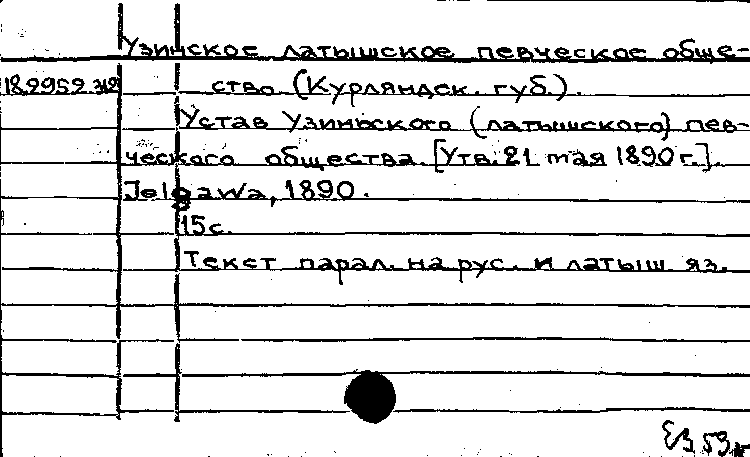 Узинское латышское певческое обще-
18.2959.312 ство (Курляндск. губ.).
Устав Узинского (латышского) пев-
ческого общества. [Утв. 21 мая 1890 г.].
Jelgawa, 1890.
15 с.
Текст парал. на рус. и латыш яз.